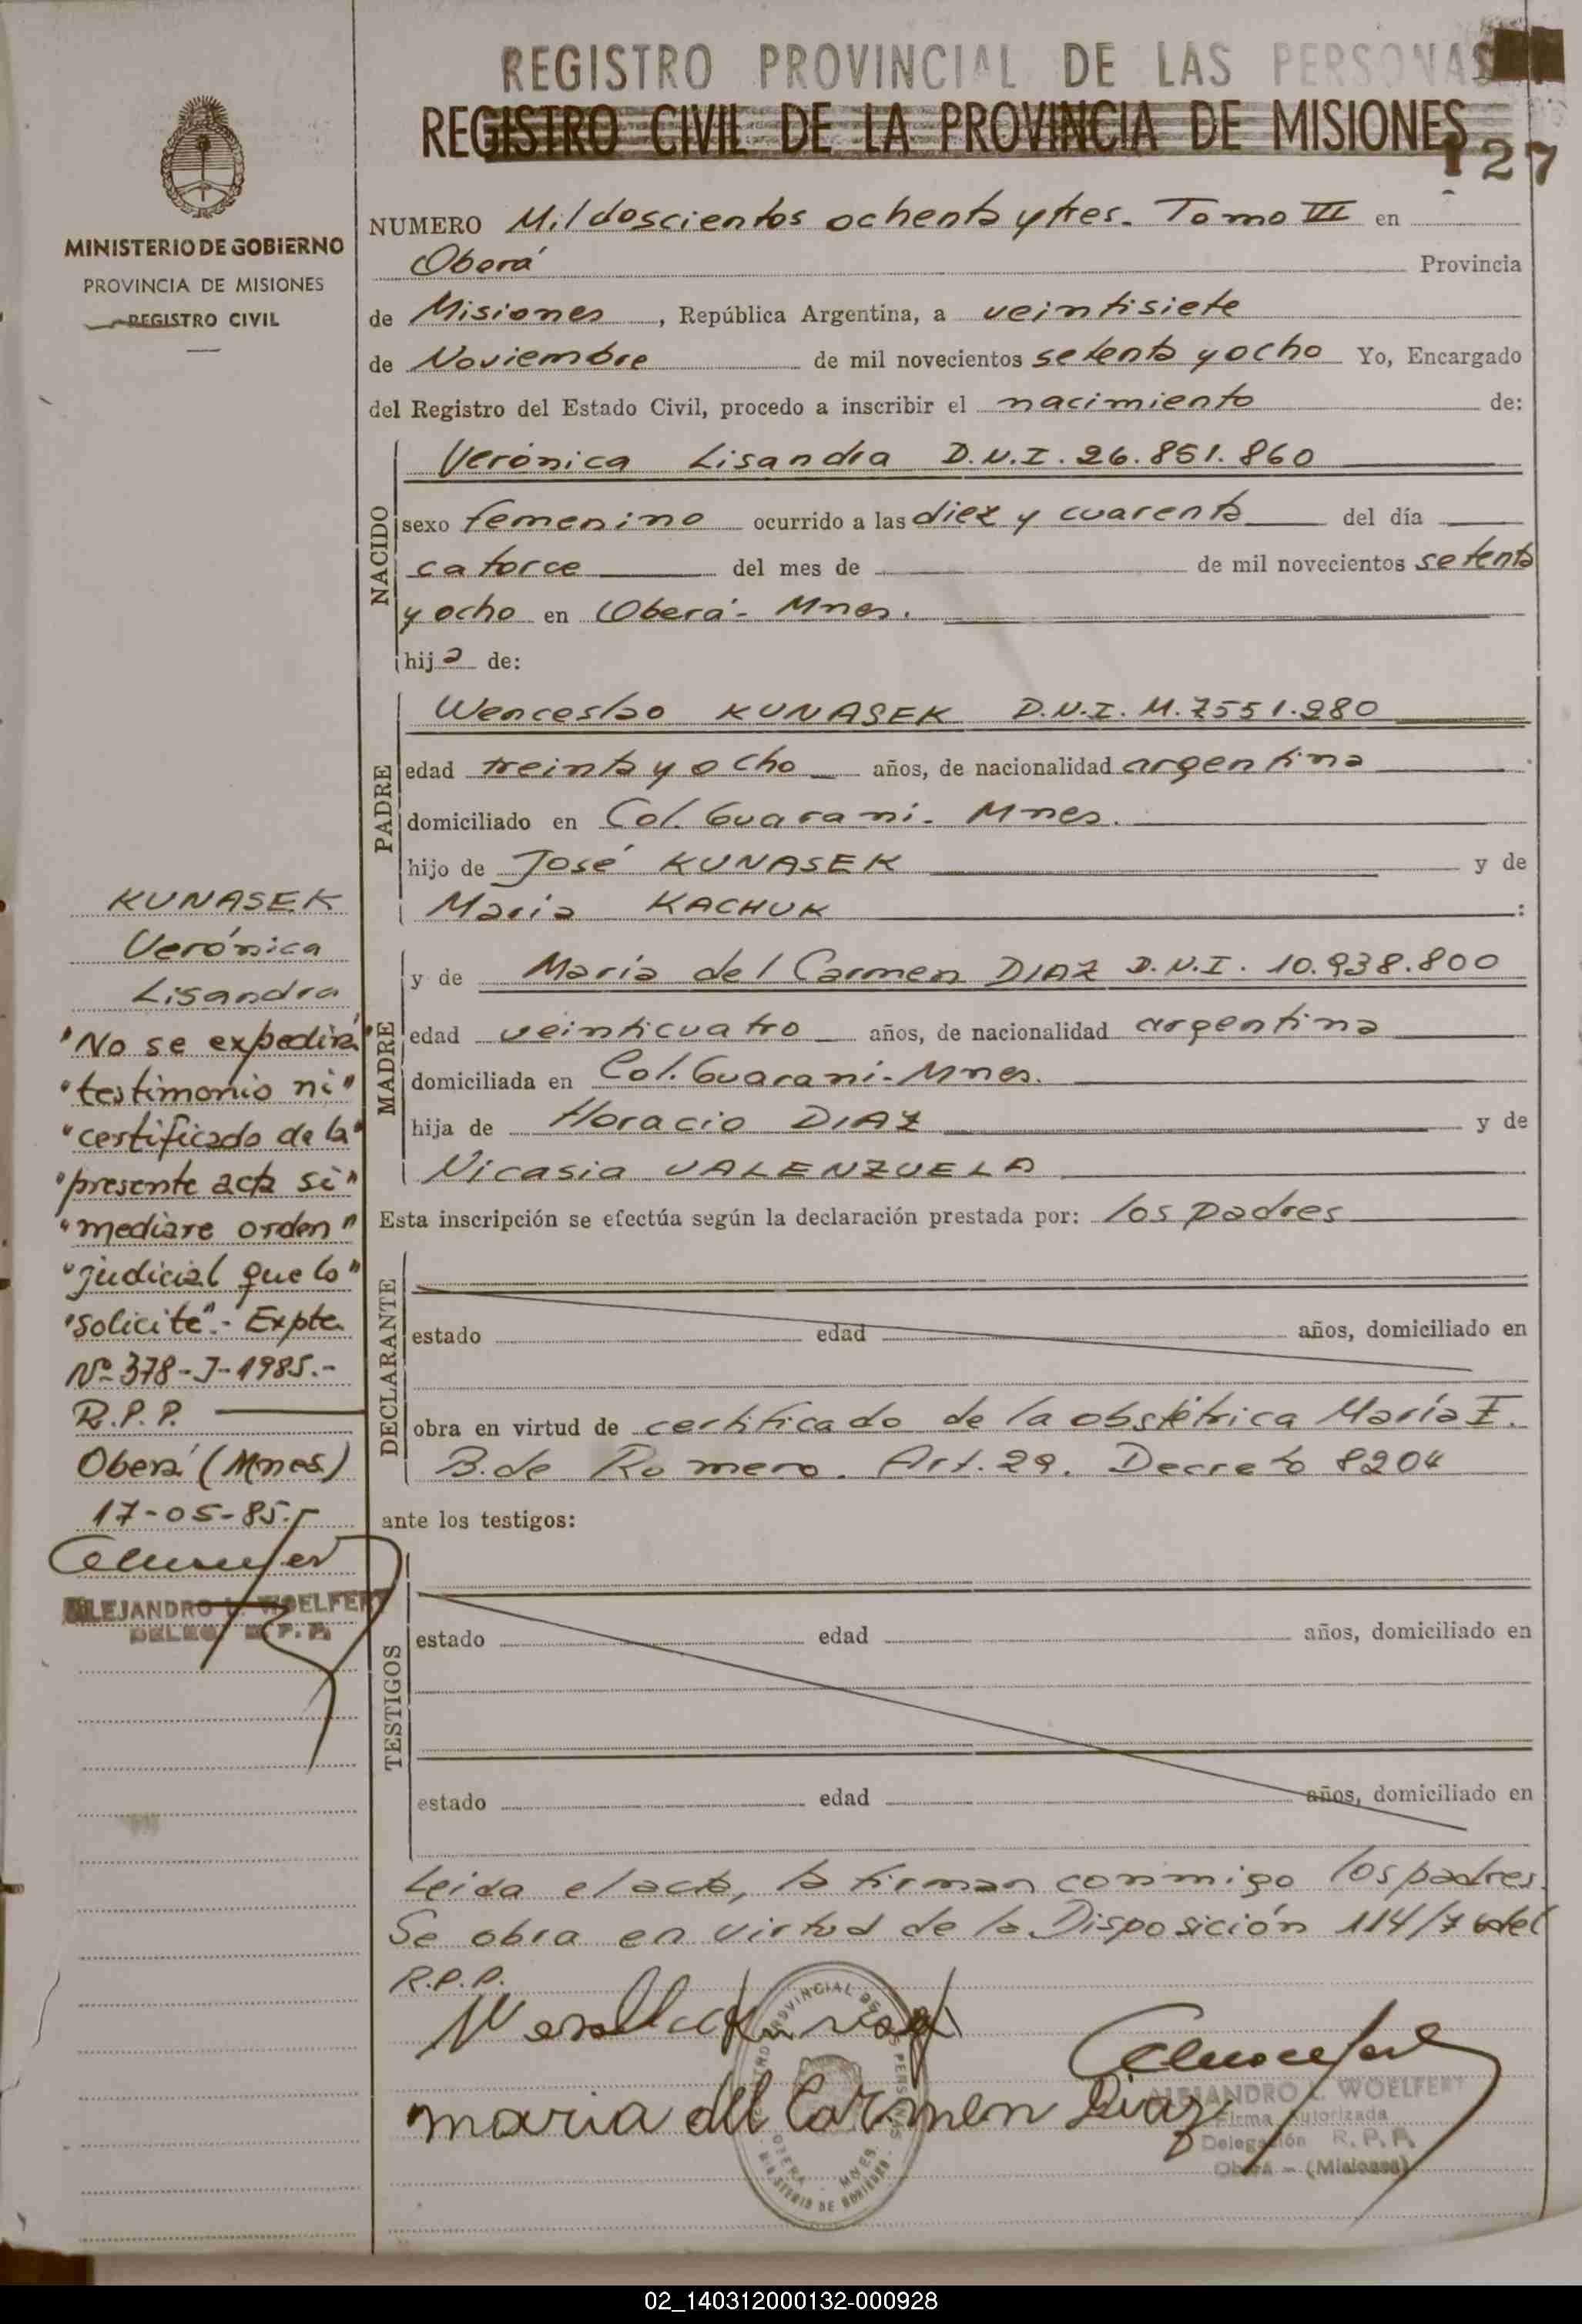 REGISTRO PROVINCIAL DE LAS PERSONAS
REGISTRO CIVIL DE LA PROVINCIA DE MISIONES
127
MINISTERIO DE GOBIERNO
PROVINCIA DE MISIONES
REGISTRO CIVIL
NUMERO Mil doscientos ochenta y tres. Tomo III en
Oberá Provincia
de Misiones, República Argentina, a veintisiete
de Noviembre de mil novecientos setenta y ocho Yo, Encargado
del Registro del Estado Civil, procedo a inscribir el nacimiento de:
NACIDO
Verónica Lisandra D.N.I. 26.851.860
sexo femenino ocurrido a las diez y cuarenta del día
catorce del mes de de mil novecientos setenta
y ocho en Oberá - Mnes.
hija de:
PADRE
Wenceslao KUNASEK D.N.I. M. 7551.980
edad treinta y ocho años, de nacionalidad argentina
domiciliado en Col. Guaraní - Mnes.
hijo de José KUNASEK y de
María KACHUK :
MADRE
y de María del Carmen DIAZ D.N.I. 10.938.800
edad veinticuatro años, de nacionalidad argentina
domiciliada en Col. Guaraní - Mnes.
hija de Horacio DIAZ y de
Nicasia VALENZUELA
Esta inscripción se efectúa según la declaración prestada por: los padres
DECLARANTE
estado edad años, domiciliado en
obra en virtud de certificado de la obstétrica María I.
B. de Romero. Art. 29. Decreto 8204
ante los testigos:
TESTIGOS
estado edad años, domiciliado en
estado edad años, domiciliado en
Leida el acta, la firman conmigo los padres.
Se obra en virtud de la Disposición 114/76 del
R.P.P.
maria del Carmen Diaz
ALEJANDRO L. WOELFERT
Firma Autorizada
Delegación R.P.P.
Oberá - (Misiones)
PROVINCIAL DE LAS PERSONAS
OBERA - MNES.
MINISTERIO DE GOBIERNO
KUNASEK
Verónica
Lisandra
"No se expedirá"
"testimonio ni"
"certificado de la"
"presente acta si"
"mediare orden"
"judicial que lo"
"solicite".- Expte.
Nº 378-J-1985.-
R.P.P.
Oberá (Mnes)
17-05-85.-
ALEJANDRO L. WOELFERT
DELEG. R.P.P.
02_140312000132-000928